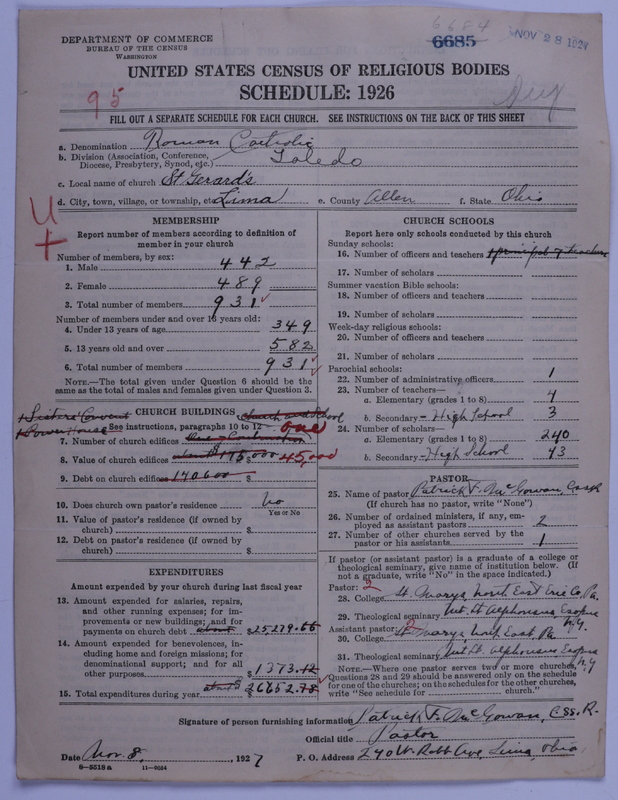 6684
6685
NOV 28 1927
DEPARTMENT OF COMMERCE
BUREAU OF THE CENSUS
WASHINGTON
UNITED STATES CENSUS OF RELIGIOUS BODIES
SCHEDULE: 1926
95
FILL OUT A SEPARATE SCHEDULE FOR EACH CHURCH. SEE INSTRUCTIONS ON THE BACK OF THIS SHEET
a. Denomination Roman Catholic
b. Division (Association, Conference, Diocese, Presbytery, Synod, etc.) Toledo
c. Local name of church St Gerard's
d. City, town, village, or township, etc. Lima e. County Allen f. State Ohio
U
+
MEMBERSHIP
Report number of members according to definition of
member in your church
Number of members, by sex:
1. Male 442
2. Female 489
3. Total number of members 931
Number of members under and over 13 years old:
4. Under 13 years of age 349
5. 13 years old and over 582
6. Total number of members 931
NOTE.—The total given under Question 6 should be the
same as the total of males and females given under Question 3.
CHURCH BUILDINGS church and school
1 Sisters Convent
1 Power House See instructions, paragraphs 10 to 12 one
7. Number of church edifices One - Combination
8. Value of church edifices about $175,000 45,000
9. Debt on church edifices 140600 $
10. Does church own pastor's residence No
Yes or No
11. Value of pastor's residence (if owned by
church) $
12. Debt on pastor's residence (if owned by
church) $
EXPENDITURES
Amount expended by your church during last fiscal year
13. Amount expended for salaries, repairs,
and other running expenses; for im-
provements or new buildings; and for
payments on church debt about $25,279.66
14. Amount expended for benevolences, in-
cluding home and foreign missions; for
denominational support; and for all
other purposes $1373.12
15. Total expenditures during year about $26652.78
CHURCH SCHOOLS
Report here only schools conducted by this church
Sunday schools:
16. Number of officers and teachers 1 principal 7 teachers
17. Number of scholars
Summer vacation Bible schools:
18. Number of officers and teachers
19. Number of scholars
Week-day religious schools:
20. Number of officers and teachers
21. Number of scholars
Parochial schools:
22. Number of administrative officers 1
23. Number of teachers—
a. Elementary (grades 1 to 8) 4
b. Secondary - High School 3
24. Number of scholars—
a. Elementary (grades 1 to 8) 240
b. Secondary - High School 43
PASTOR
25. Name of pastor Patrick F. McGowan, CssR
(If church has no pastor, write "None")
26. Number of ordained ministers, if any, em-
ployed as assistant pastors 2
27. Number of other churches served by the
pastor or his assistants 1
If pastor (or assistant pastor) is a graduate of a college or
theological seminary, give name of institution below. (If
not a graduate, write "No" in the space indicated.)
Pastor: 2
28. College St. Marys North East Erie Co, Pa.
29. Theological seminary Mt. St Alphonsus, Esopus N.Y.
Assistant pastor: 2
30. College St Marys North East, Pa
31. Theological seminary Mt St. Alphonsus Esopus N.Y
NOTE.—Where one pastor serves two or more churches,
Questions 28 and 29 should be answered only on the schedule
for one of the churches; on the schedules for the other churches,
write "See schedule for church."
Signature of person furnishing information Patrick F. McGowan, C.SS.R.
Official title Pastor
Date Nov. 8, 1927 P. O. Address 240 W. Robb Ave, Lima, Ohio
8—5518a 11—9034